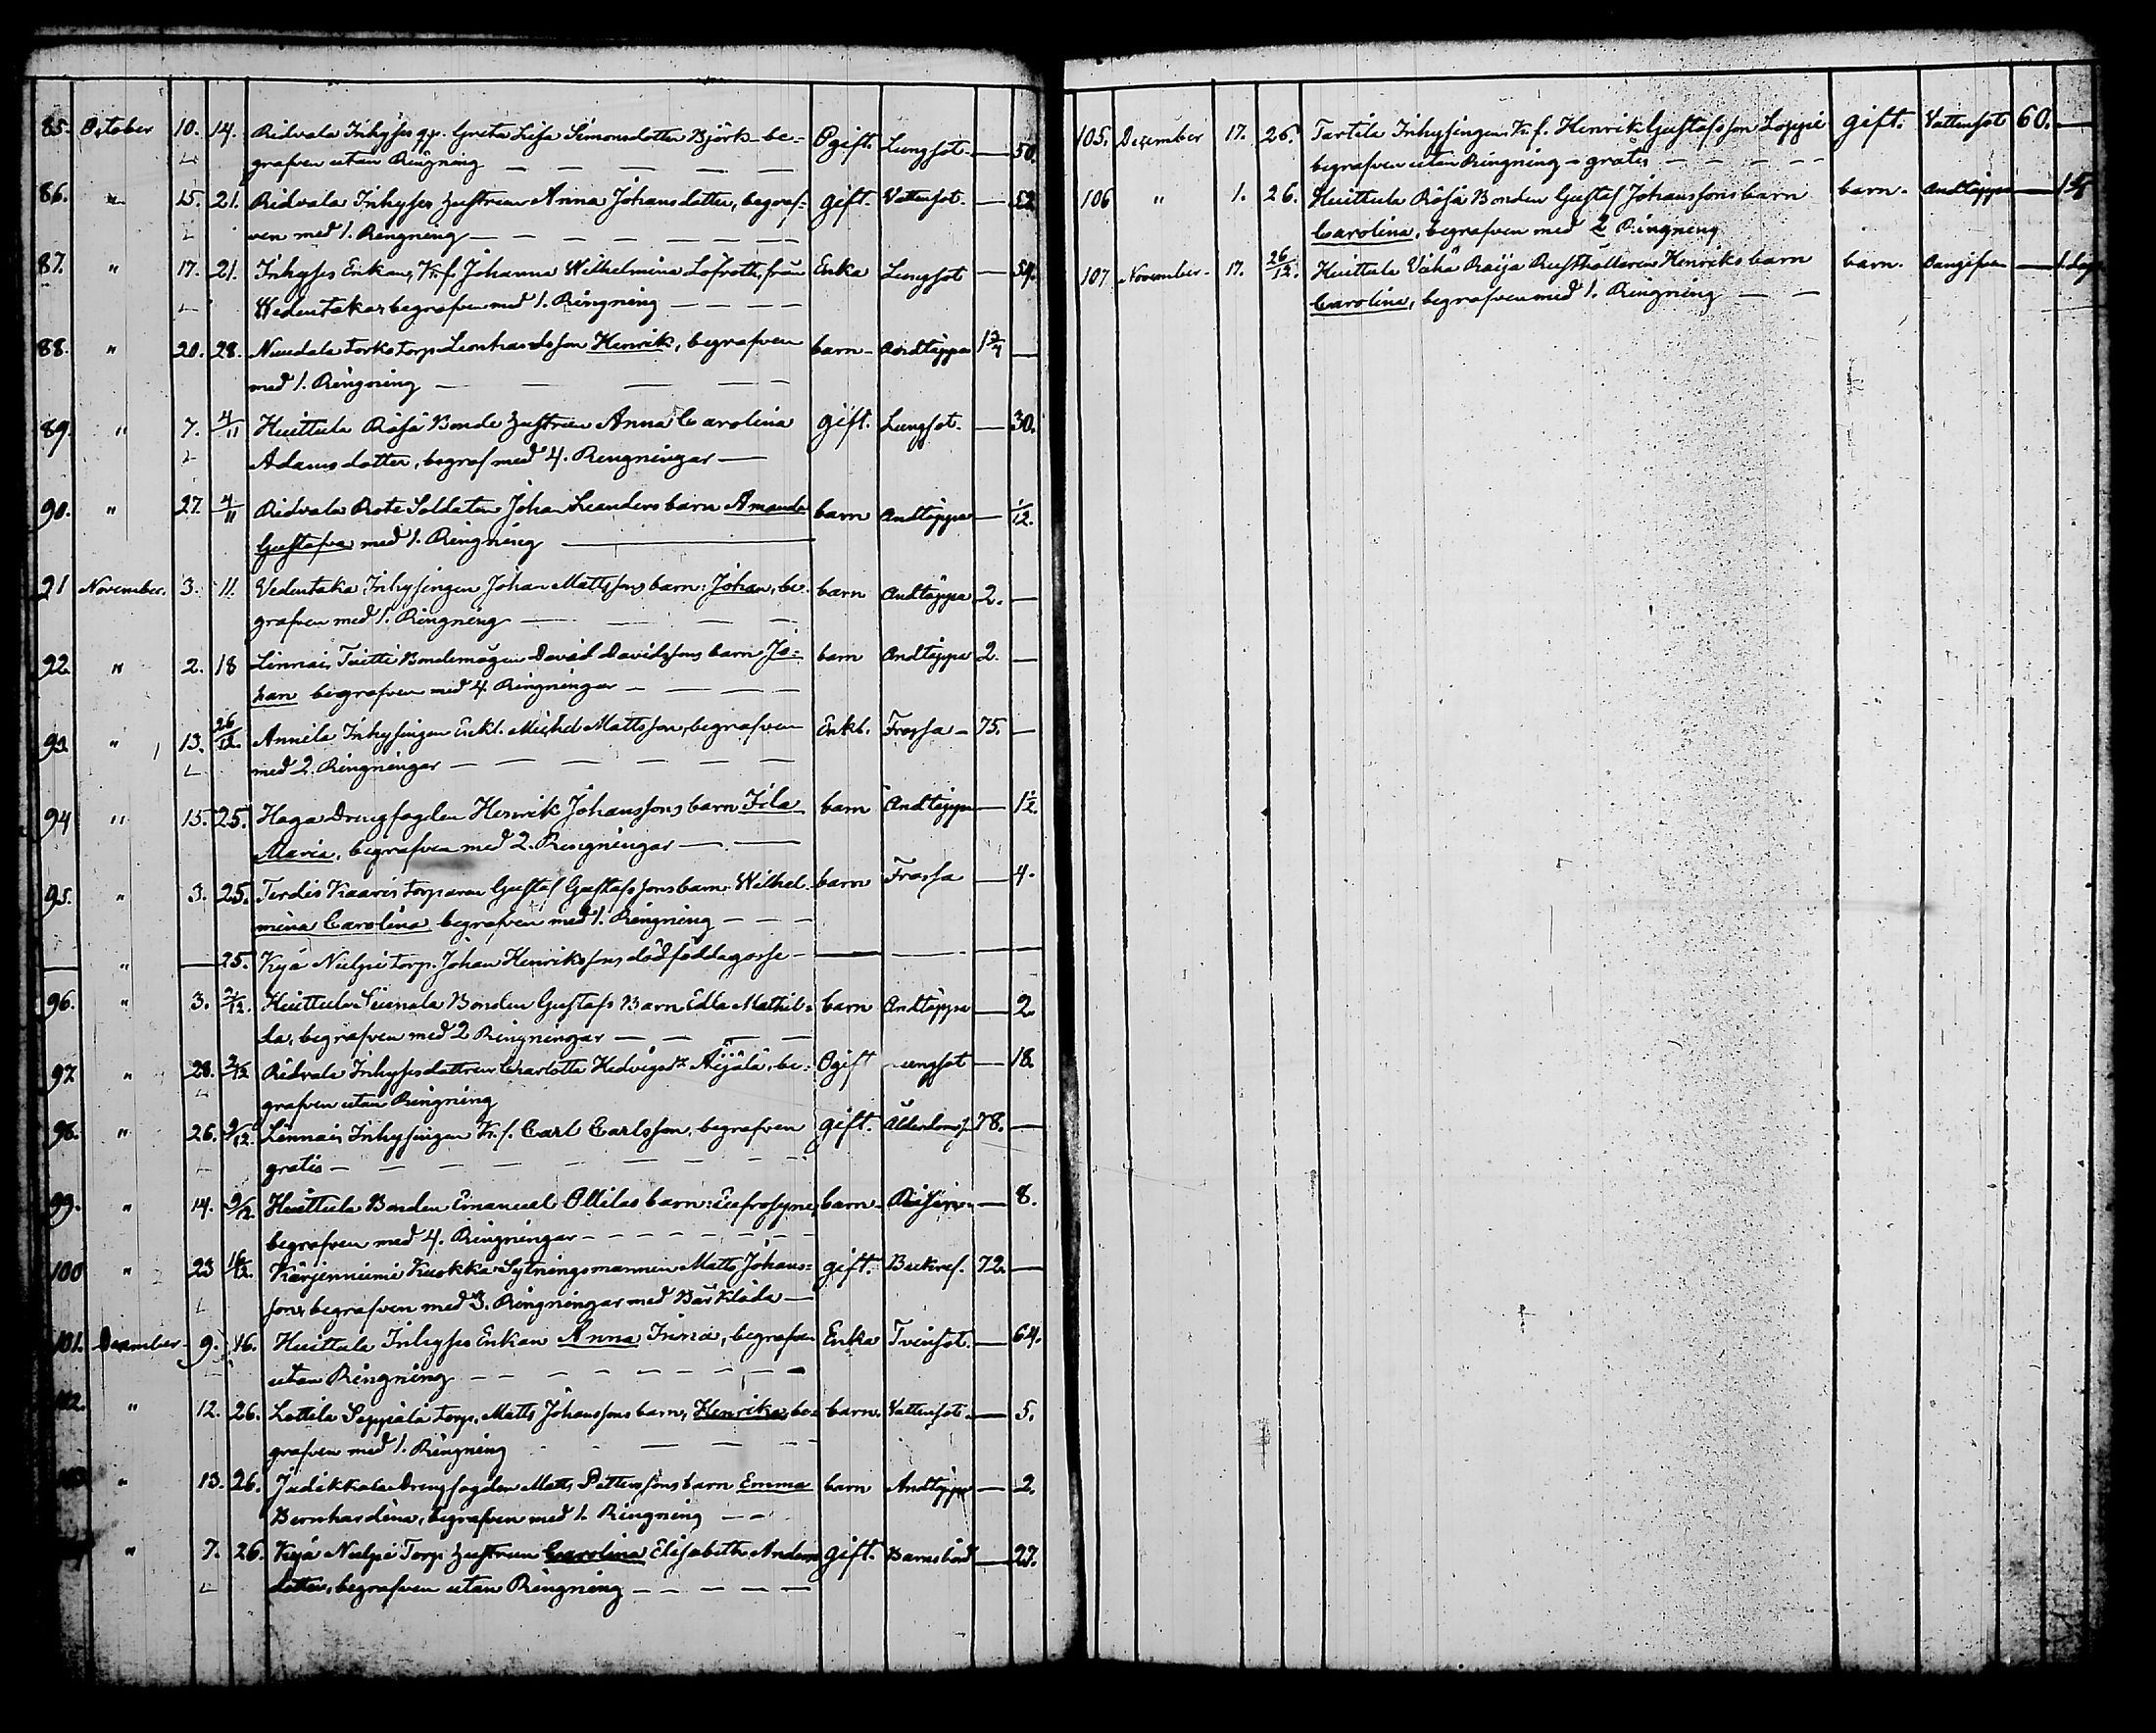 85. October 10. 14. Ridvala Inhyses qp. Greta Lisa Simonsdotter Björk be- Ogift. Lungsot. — 50.
grafven utan Ringning
86. " 15. 21. Ridvala Inhyses hustrun Anna Johansdotter, begraf- gift. Vattensot. — 52.
ven med 1. Ringning
87. " 17. 21. Inhyses Enkan, Fr. f. Johanna Wilhelmina Löfroth, från Enka Lungsot — 54.
Wedentaka, begrafven med 1. Ringning
88. " 20. 28. torp. Leonhardsson Henrik, begrafven barn. Andtäppa 1 3/4 —
med 1. Ringning
89. " 7. 4/11 Huittula Rösä Bonde hustrun Anna Carolina gift. Lungsot. — 30.
Adamsdotter, begraf med 4. Ringningar —
90. " 27. 4/11 Ridvala Rote Soldaten Johan Leanders barn Amanda barn Andtäppa — 1/12.
Gustafva med 1. Ringning
91 November. 3. 11. Vedentaka, Inhysingen Johan Mattssons barn: Johan, be- barn Andtäppa 2. —
grafven med 1. Ringning
92. " 2. 18 Linnais Tuitti Bondemågen David Davidssons barn Jo- barn Andtäppa 2. —
han begrafven med 4. Ringningar
93. " 13. 26/12. Annila Inhysingen Enkl. Michel Mattsson, begrafven Enkl. Frossa — 75. —
med 2. Ringningar
94 " 15. 25. Haga Drengfogden Henrik Johanssons barn Fila barn Andtäppa — 1 1/2.
Maria, begrafven med 2. Ringningar
95. " 3. 25. Terdis Kaaris torparen Gustaf Gustafssons barn Wilhel- barn Frossa — 4.
mina Carolina begrafven med 1. Ringning
— " — 25. Kyä Nulpi torp. Johan Henrikssons dödfödda gosse —
96. " 3. 2/12. Huittula Simala Bonden Gustafs Barn Edla Mathil- barn Andtäppa — 2.
da, begrafven med 2 Ringningar
97. " 28. 2/12 Ridvala Inhysesdottren Charlotta Hedvig Äijälä, be- Ogift Lungsot — 18.
grafven utan Ringning
98. " 26. 9/12. Linnais Inhysingen Fr. f. Carl Carlsson, begrafven gift. Ålderdoms 78. —
gratis
99. " 14. 9/12. Huittula Bonden Emanuel Ollilas barn: Eufrosyne, barn. — 8.
begrafven med 4. Ringningar
100 " 23 Kärjenniemi Kuokka Sytningsmannen Matts Johans- gift. 72. —
son, begrafven med 3. Ringningar med Bår Kläde —
101. December. 9. 16. Huittula Inhyses Enkan Anna Irina, begrafven Enka Tvinsot. — 64.
utan Ringning
102. " 12. 26. Lottila Seppälä torp. Matts Johanssons barn, Henrika, be- barn. Vattensot. — 5.
grafven med 1. Ringning
103. " 13. 26. Judikkala Drengfogden Matts Petterssons barn Emma barn Andtäppa — 2.
Bernhardina, begrafven med 1. Ringning
" 7. 26. Kyä Nulpi Torp. hustrun Carolina Elisabeth Anders gift. Barnsbörd — 27.
dotter, begrafven utan Ringning
105. December 17. 26. Tartila Inhysingen Fr. f. Henrik Gustafsson Loppi gift. Vattensot 60. —
begrafven utan Ringning - gratis
106 " 1. 26. Huittula Rösä Bonden Gustaf Johanssons barn barn. Andtäppa —
Carolina, begrafven med 2 Ringning
107 November. 17. 26/12. Huittula Vähä Raija Rusthållaren Henriks barn barn. Oangifven — 1. dag
Carolina, begrafven med 1. Ringning